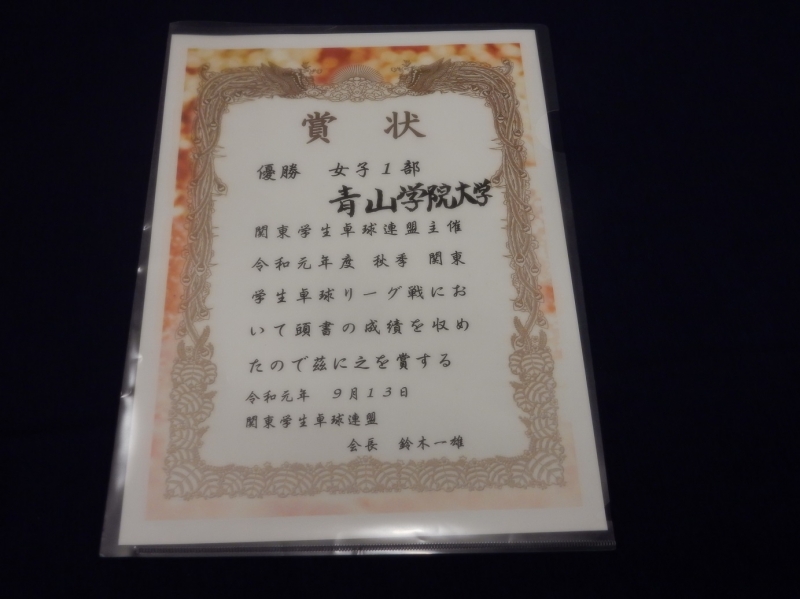 賞 状
優勝 女子1部
青山学院大学
関東学生卓球連盟主催
令和元年度 秋季 関東
学生卓球リーグ戦にお
いて頭書の成績を収め
たので茲に之を賞する
令和元年 9月13日
関東学生卓球連盟
会長 鈴木一雄